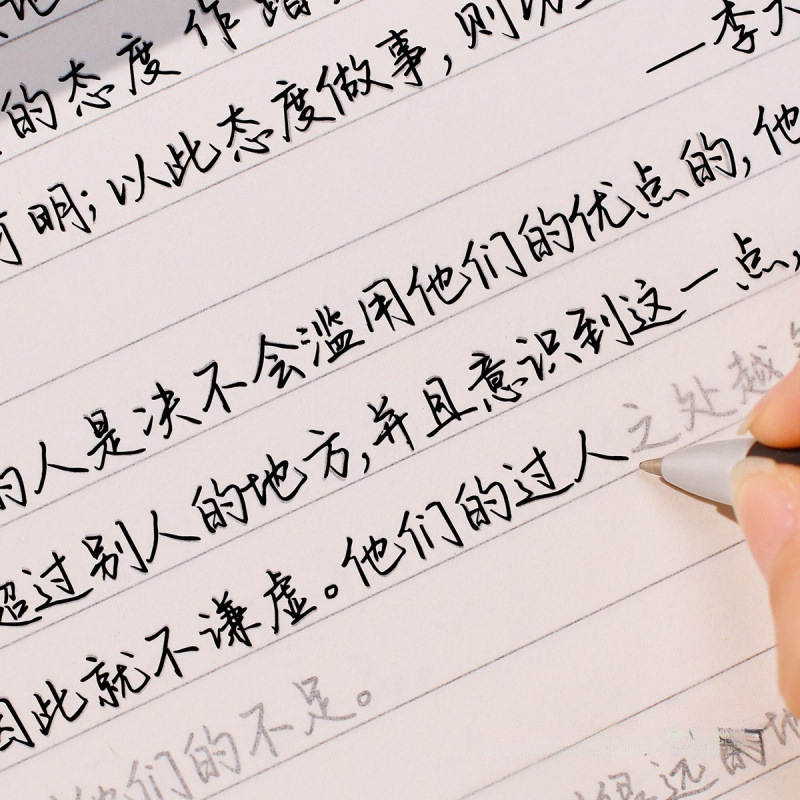 的态度作踏
—李大
有明；以此态度做事，则功
的人是决不会滥用他们的优点的，他
超过别人的地方，并且意识到这一点，
因此就不谦虚。他们的过人之处越
他们的不足。
很远的地